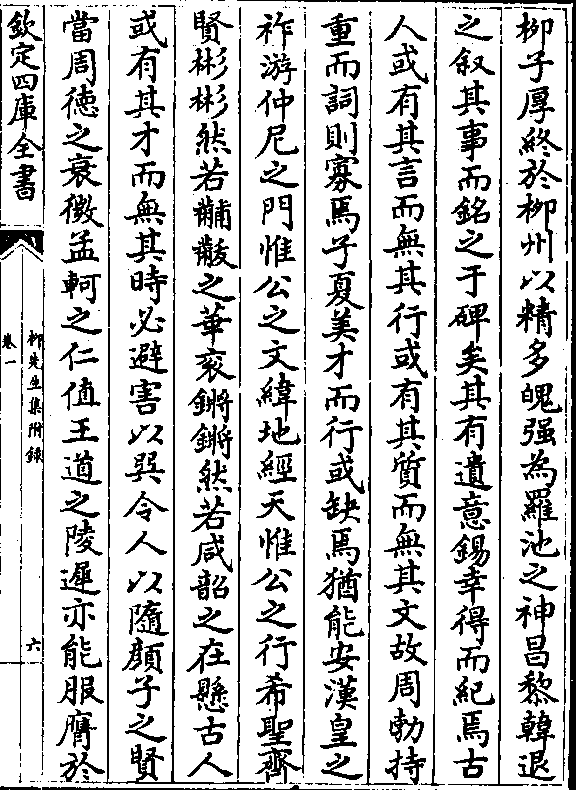 柳子厚終於柳州以精多魄强為羅池之神昌黎韓退
之叙其事而銘之于碑矣其有遺意錫幸得而紀焉古
人或有其言而無其行或有其質而無其文故周勃持
重而詞則寡焉子夏美才而行或缺焉猶能安漢皇之
祚游仲尼之門惟公之文緯地經天惟公之行希聖齊
賢彬彬然若黼黻之華衮鏘鏘然若咸韶之在懸古人
或有其才而無其時必避害以巽令人以隨顔子之賢
當周徳之衰微孟軻之仁值王道之陵遲亦能服膺於
欽定四庫全書
柳先生集附錄
卷一
六